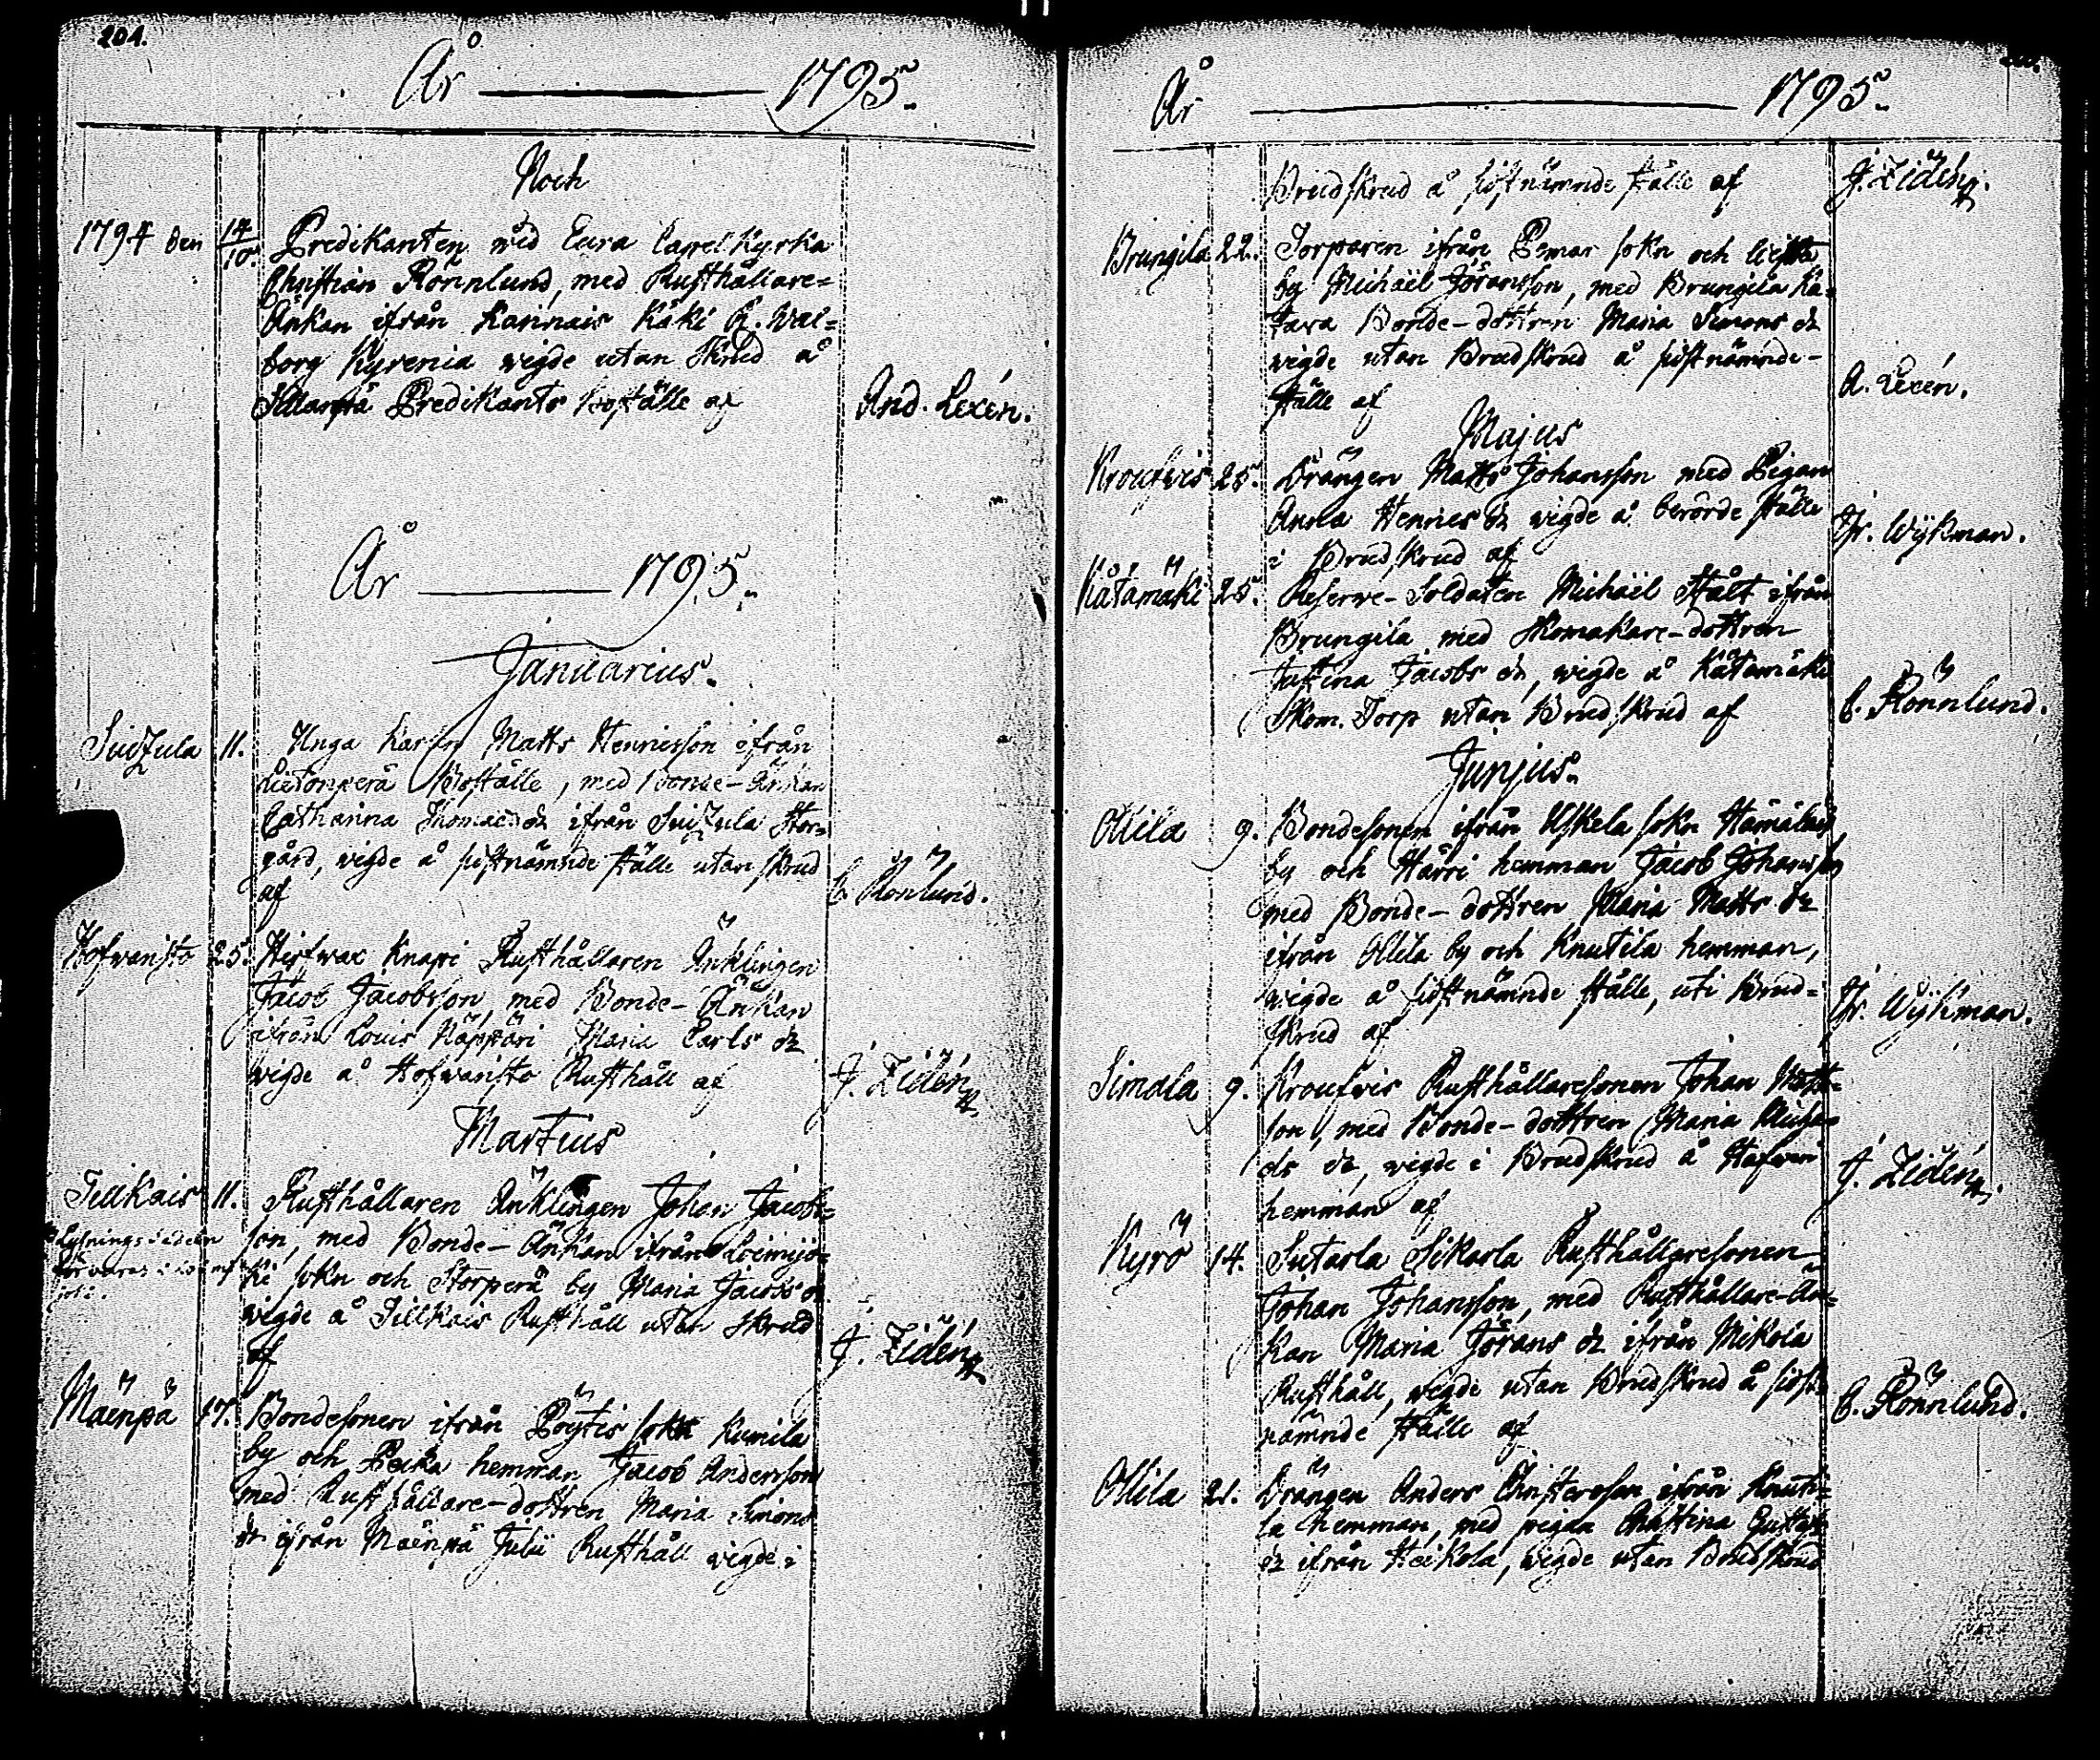 204.
År 1795.
Noch
1794 den 14/10. Predikanten wid Eura Capel Kyrka
Christian Rönnlund, med Rusthållare-
Änkan ifrån Kannais Käki H. Wal-
borg Kyrenia wigde utan Skrud å
Predikants boställe af And. Lexén.
År 1795.
Januarius.
Suizula 11. Unga Karlen Matts Henricsson ifrån
Boställe, med Bonde-Änkan
Catharina Thomæ dr ifrån Suizula Stor-
gård, wigde å sistnämnde ställe utan skrud
af C. Rönlund.
Hofwaristo 25. Knapi Rusthållaren Änklingen
Jacob Jacobsson, med Bonde-Änkan
ifrån Louis Näppäri Maria Carls dr
wigde å Hofwaristo Rusthåll af J. Zidén
Martius
Tillkais 11. Rusthållaren Änklingen Johan Jacobs-
son, med Bonde-Änkan ifrån Loimijo-
Lysnings sedeln
förwaras i
ki sokn och Storperä by Maria Jacobs dr
wigde å Tillkais Rusthåll utan skrud
af J. Zidén
Mäenpä 17. Bondesonen ifrån Pöytis sokn Kumila
by och hemman Jacob Andersson
med Rusthållare-dottren Maria Simons
dr ifrån Mäenpä Juli Rusthåll wigde i
År 1795.
Brudskrud å sistnämnde ställe af J. Zidén.
Brungila 22. Torparen ifrån Pemar sokn och
by Michaël Jöransson, med Brungila Ka-
tava Bonde-dottren Maria Simons dr
wigde utan Brudskrud å sistnämnde-
ställe af A. Lexén.
Majus
Kroufwis 25. Drängen Matts Johansson med Pigan
Anna Henrics dr wigde å berörde ställe
i Brudskrud af Hr. Wijkman.
Kätämäki 25. Reserwe-Soldaten Michaël Stålt ifrån
Brungila med Skomakare-dottren
Justina Jacobs dr, wigde å Kätämäki
Skom. Torp utan Brudskrud af C. Rönnlund.
Junjus.
Ollila 9. Bondesonen ifrån Uskela sokn
by och Härri hemman Jacob Johansson
med Bonde-dottren Maria Matts dr
ifrån Ollila by och Knutila hemman,
wigde å sistnämnde ställe, uti Brud-
skrud af Hr. Wijkman.
Simala 9. Kroufwis Rusthållaresonen Johan Matts-
son, med Bonde-dottren Maria Micha-
els dr, wigde i Brudskrud å
hemman af J. Zidén.
Kyrö 14. Sutarla Sikarla Rusthållaresonen
Johan Johansson, med Rusthållare-Än-
kan Maria Jörans dr ifrån Mikola
Rusthåll, wigde utan Brudskrud å sist-
nämnde ställe af C. Rönnlund.
Ollila 21. Drängen Anders Christersson ifrån Knuti-
la hemman, med pigan Christina
dr ifrån Heikola, wigde utan Brudskrud